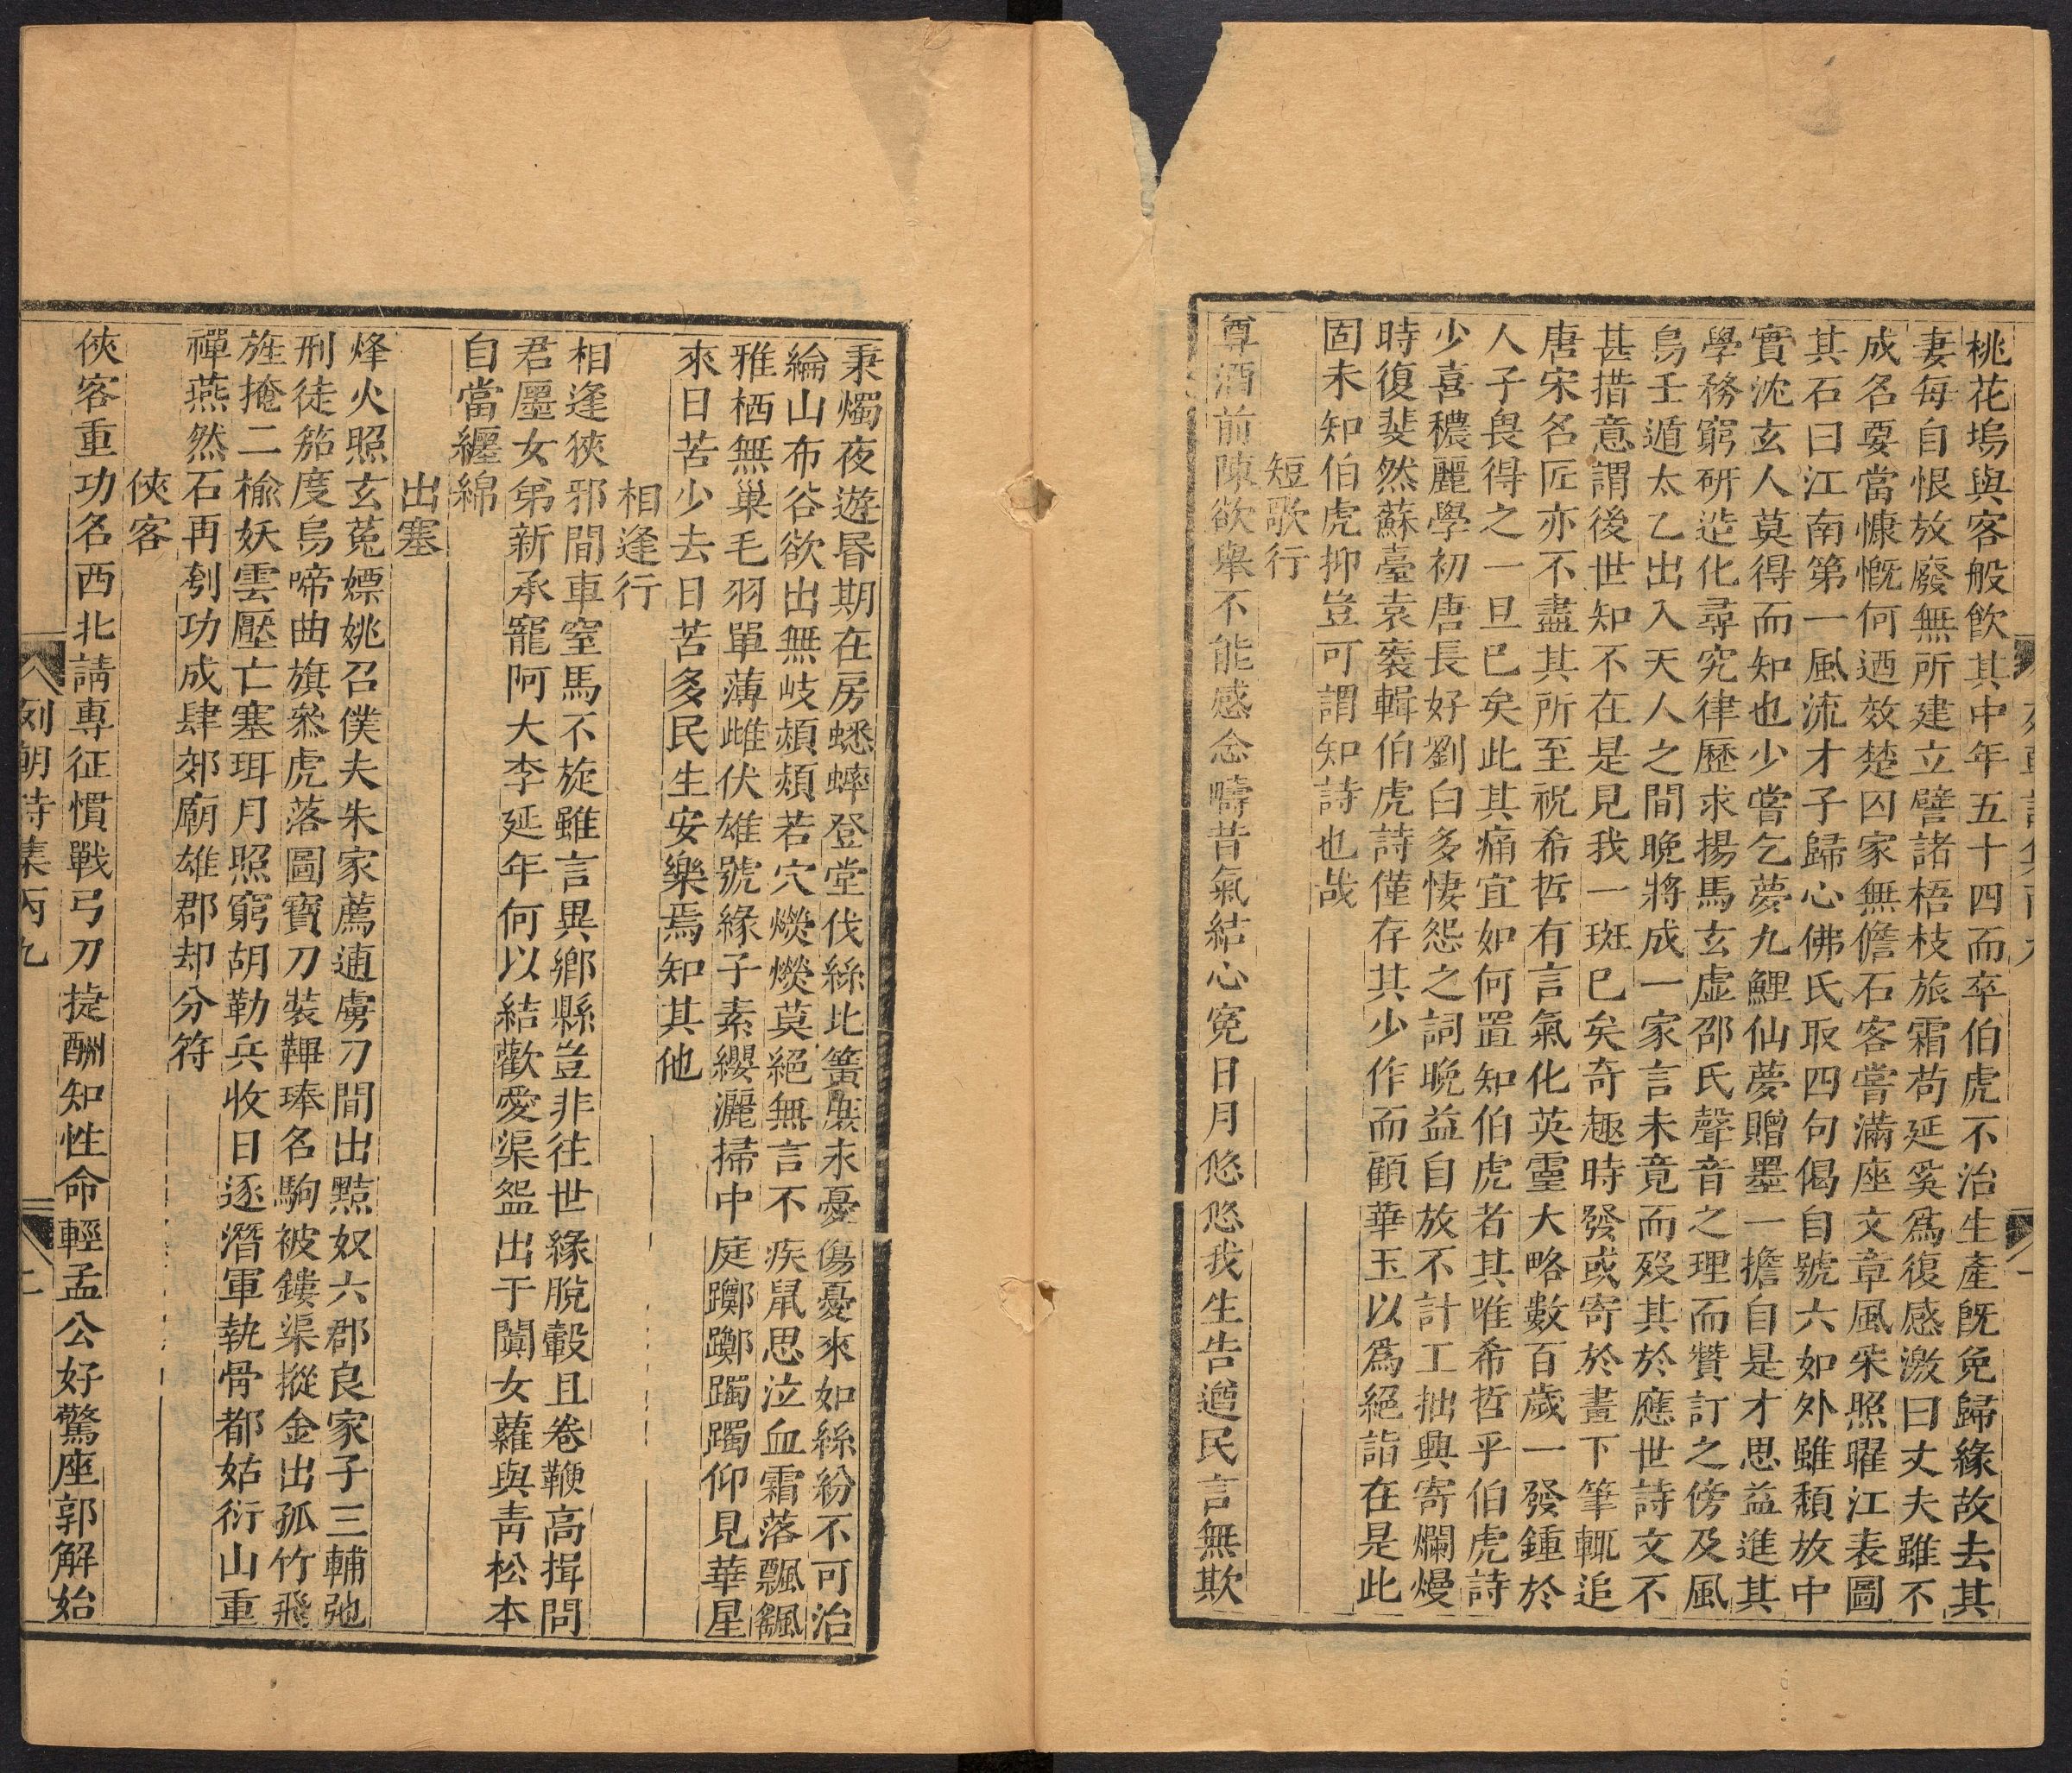 桃花塢與客般飲其中年五十四而卒伯虎不治生產旣免歸緣故去其
妻每自恨放廢無所建立譬諸梧枝旅霜苟延奚爲復感激曰丈夫雖不
成名要當慷慨何迺效楚囚家無儋石客嘗滿座文章風采照曜江表圖
其石曰江南第一風流才子歸心佛氏取四句偈自號六如外雖頹放中
實沈玄人莫得而知也少嘗乞夢九鯉仙夢贈墨一擔自是才思益進其
學務窮研造化尋究律歷求揚馬玄虛邵氏聲音之理而贊訂之傍及風
鳥壬遁太乙出入天人之間晚將成一家言未竟而歿其於應世詩文不
甚措意謂後世知不在是見我一斑已矣奇趣時發或寄於畫下筆輒追
唐宋名匠亦不盡其所至祝希哲有言氣化英靈大略數百歲一發鍾於
人子畏得之一旦已矣此其痛宜如何置知伯虎者其唯希哲乎伯虎詩
少喜穠麗學初唐長好劉白多悽怨之詞晚益自放不計工拙興寄爛熳
時復斐然蘇臺袁袠輯伯虎詩僅存其少作而顧華玉以爲絕詣在是此
固未知伯虎抑豈可謂知詩也哉
短歌行
尊酒前陳欲舉不能感念疇昔氣結心冤日月悠悠我生告遒民言無欺
秉燭夜遊昬期在房蟋蟀登堂伐絲比簧庶永憂傷憂來如絲紛不可治
綸山布谷欲出無岐頩頩若穴熒熒莫絕無言不疾鼠思泣血霜落飄颻
雅栖無巢毛羽單薄雌伏雄號緣子素纓灑掃中庭躑躑躅躅仰見華星
來日苦少去日苦多民生安樂焉知其他
相逢行
相逢狹邪間車窒馬不旋雖言異鄉縣豈非往世緣脫轂且卷鞭高揖問
君廛女弟新承寵阿大李延年何以結歡愛渠盌出于闐女蘿與靑松本
自當纏綿
出塞
烽火照玄菟嫖姚召僕夫朱家薦逋虜刀間出黠奴六郡良家子三輔弛
刑徒笳度烏啼曲旗叅虎落圖寶刀裝鞞琫名駒被鏤渠摐金出孤竹飛
旌掩二楡妖雲壓亡塞珥月照窮胡勒兵收日逐潛軍執骨都姑衍山重
禪燕然石再刳功成肆郊廟雄郡却分符
俠客
俠客重功名西北請專征慣戰弓刀捷酬知性命輕孟公好驚座郭解始
列朝詩集丙九 二